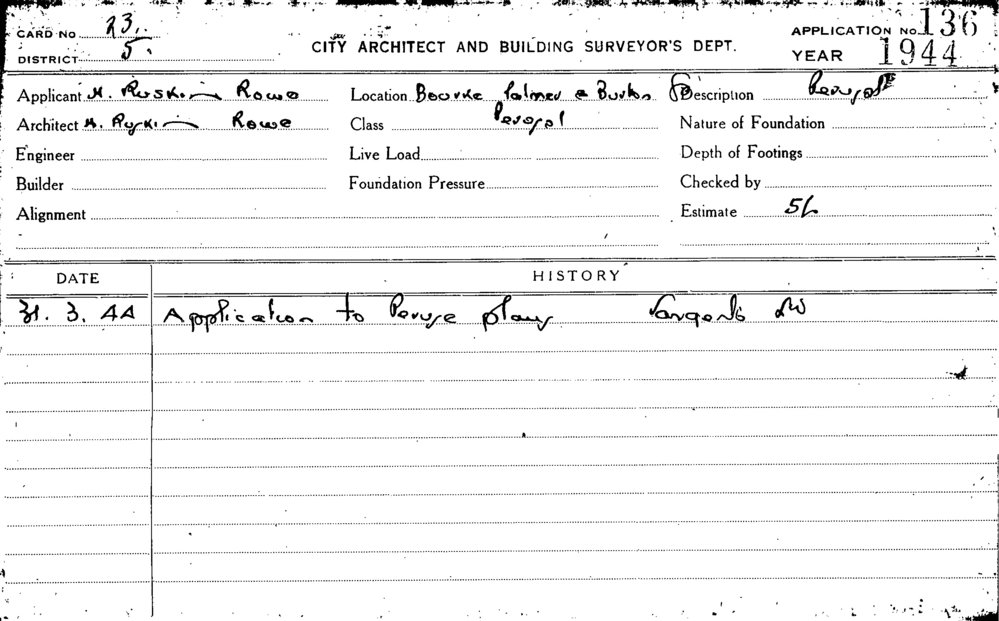 CARD No 23.
DISTRICT 5.
CITY ARCHITECT AND BUILDING SURVEYOR'S DEPT.
APPLICATION No. 136
YEAR 1944
Applicant H. Ruskin Rowe Location Bourke Palmer & Burton Description Perusal
Architect H. Ruskin Rowe Class Perusal Nature of Foundation
Engineer Live Load Depth of Footings
Builder Foundation Pressure Checked by
Alignment Estimate 5/-
DATE HISTORY
31. 3. 44 Application to Peruse plans Sargents